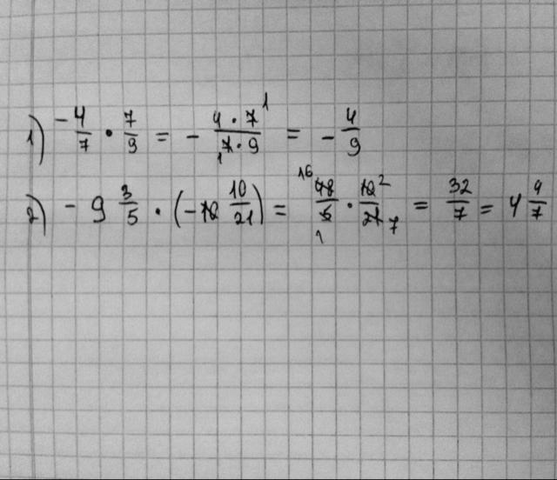 1) -4/7 · 7/9 = - 4 · 7 1/1 7 · 9 = - 4/9
2) - 9 3/5 · (- 10/21) = 16 48/5 1 · 10 2/21 7 = 32/7 = 4 4/7